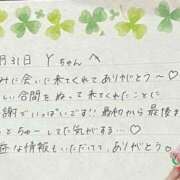 月31日 Yちゃんへ
みに会いに来てくれてありがとう〜♡
しい合間をぬって来てくれたことに
謝でいっぱいです!! 最初から最後ま
とちゅーしてた気がする…♡
な情報もいただいて、ありがとう